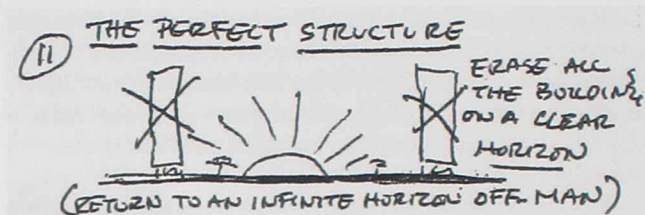 11
THE PERFECT STRUCTURE
ERASE ALL
THE BUILDINGS
ON A CLEAR
HORIZON
(RETURN TO AN INFINITE HORIZON OFF-MAN)